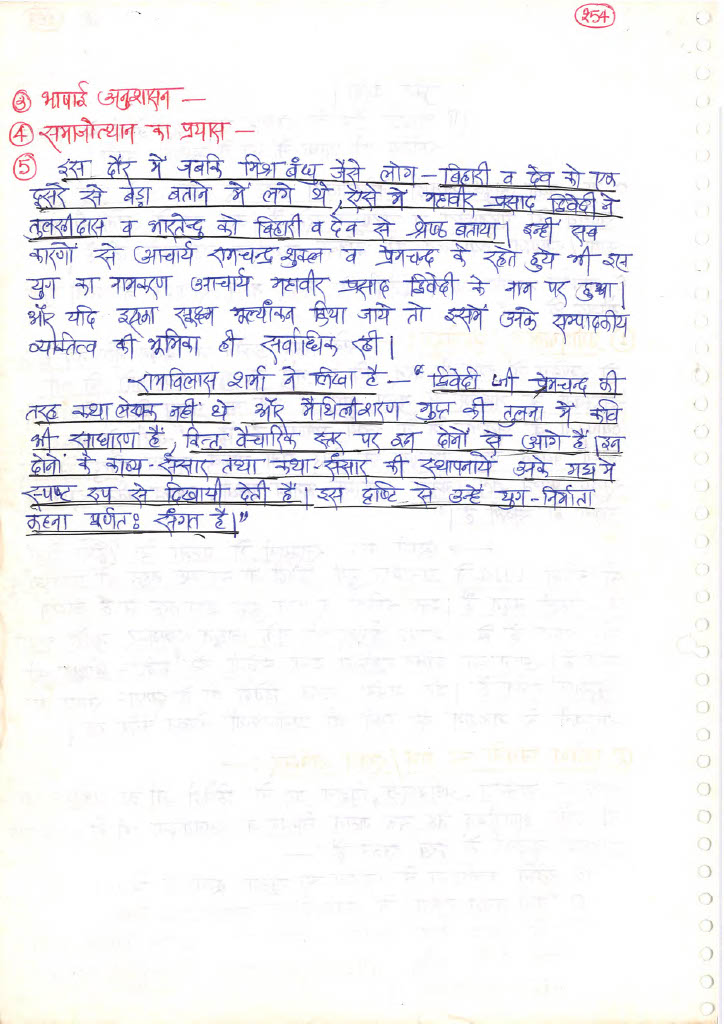 254
③ भाषाई अनुशासन —
④ समाजोत्थान का प्रयास —
⑤ इस दौर में जबकि मिश्र बंधु जैसे लोग – बिहारी व देव को एक
दूसरे से बेड़ा बताने में लगे थे, ऐसे में महावीर प्रसाद द्विवेदी ने
तुलसीदास व भारतेन्दु को बिहारी व देव से श्रेष्ठ बताया। इन्हीं सब
कारणों से आचार्य रामचन्द्र शुक्ल व प्रेमचन्द के रहते हुये भी इस
युग का नामकरण आचार्य महावीर प्रसाद द्विवेदी के नाम पर हुआ।
और यदि इसका सूक्ष्म मूल्यांकन किया जाये तो इसमें उनके सम्पादकीय
व्यक्तित्व की भूमिका ही सर्वाधिक रही।
रामविलास शर्मा ने लिखा है – “द्विवेदी जी प्रेमचन्द की
तरह कथा लेखक नहीं थे और मैथिलीशरण गुप्त की तुलना में कवि
भी साधारण हैं, किन्तु वैचारिक स्तर पर इन दोनों से आगे हैं। इन
दोनों के काव्य-संसार तथा कथा-संसार की स्थापनायें उनके गद्य में
स्पष्ट रूप से दिखायी देती हैं। इस दृष्टि से उन्हें युग-निर्माता
कहना पूर्णतः संगत है।”